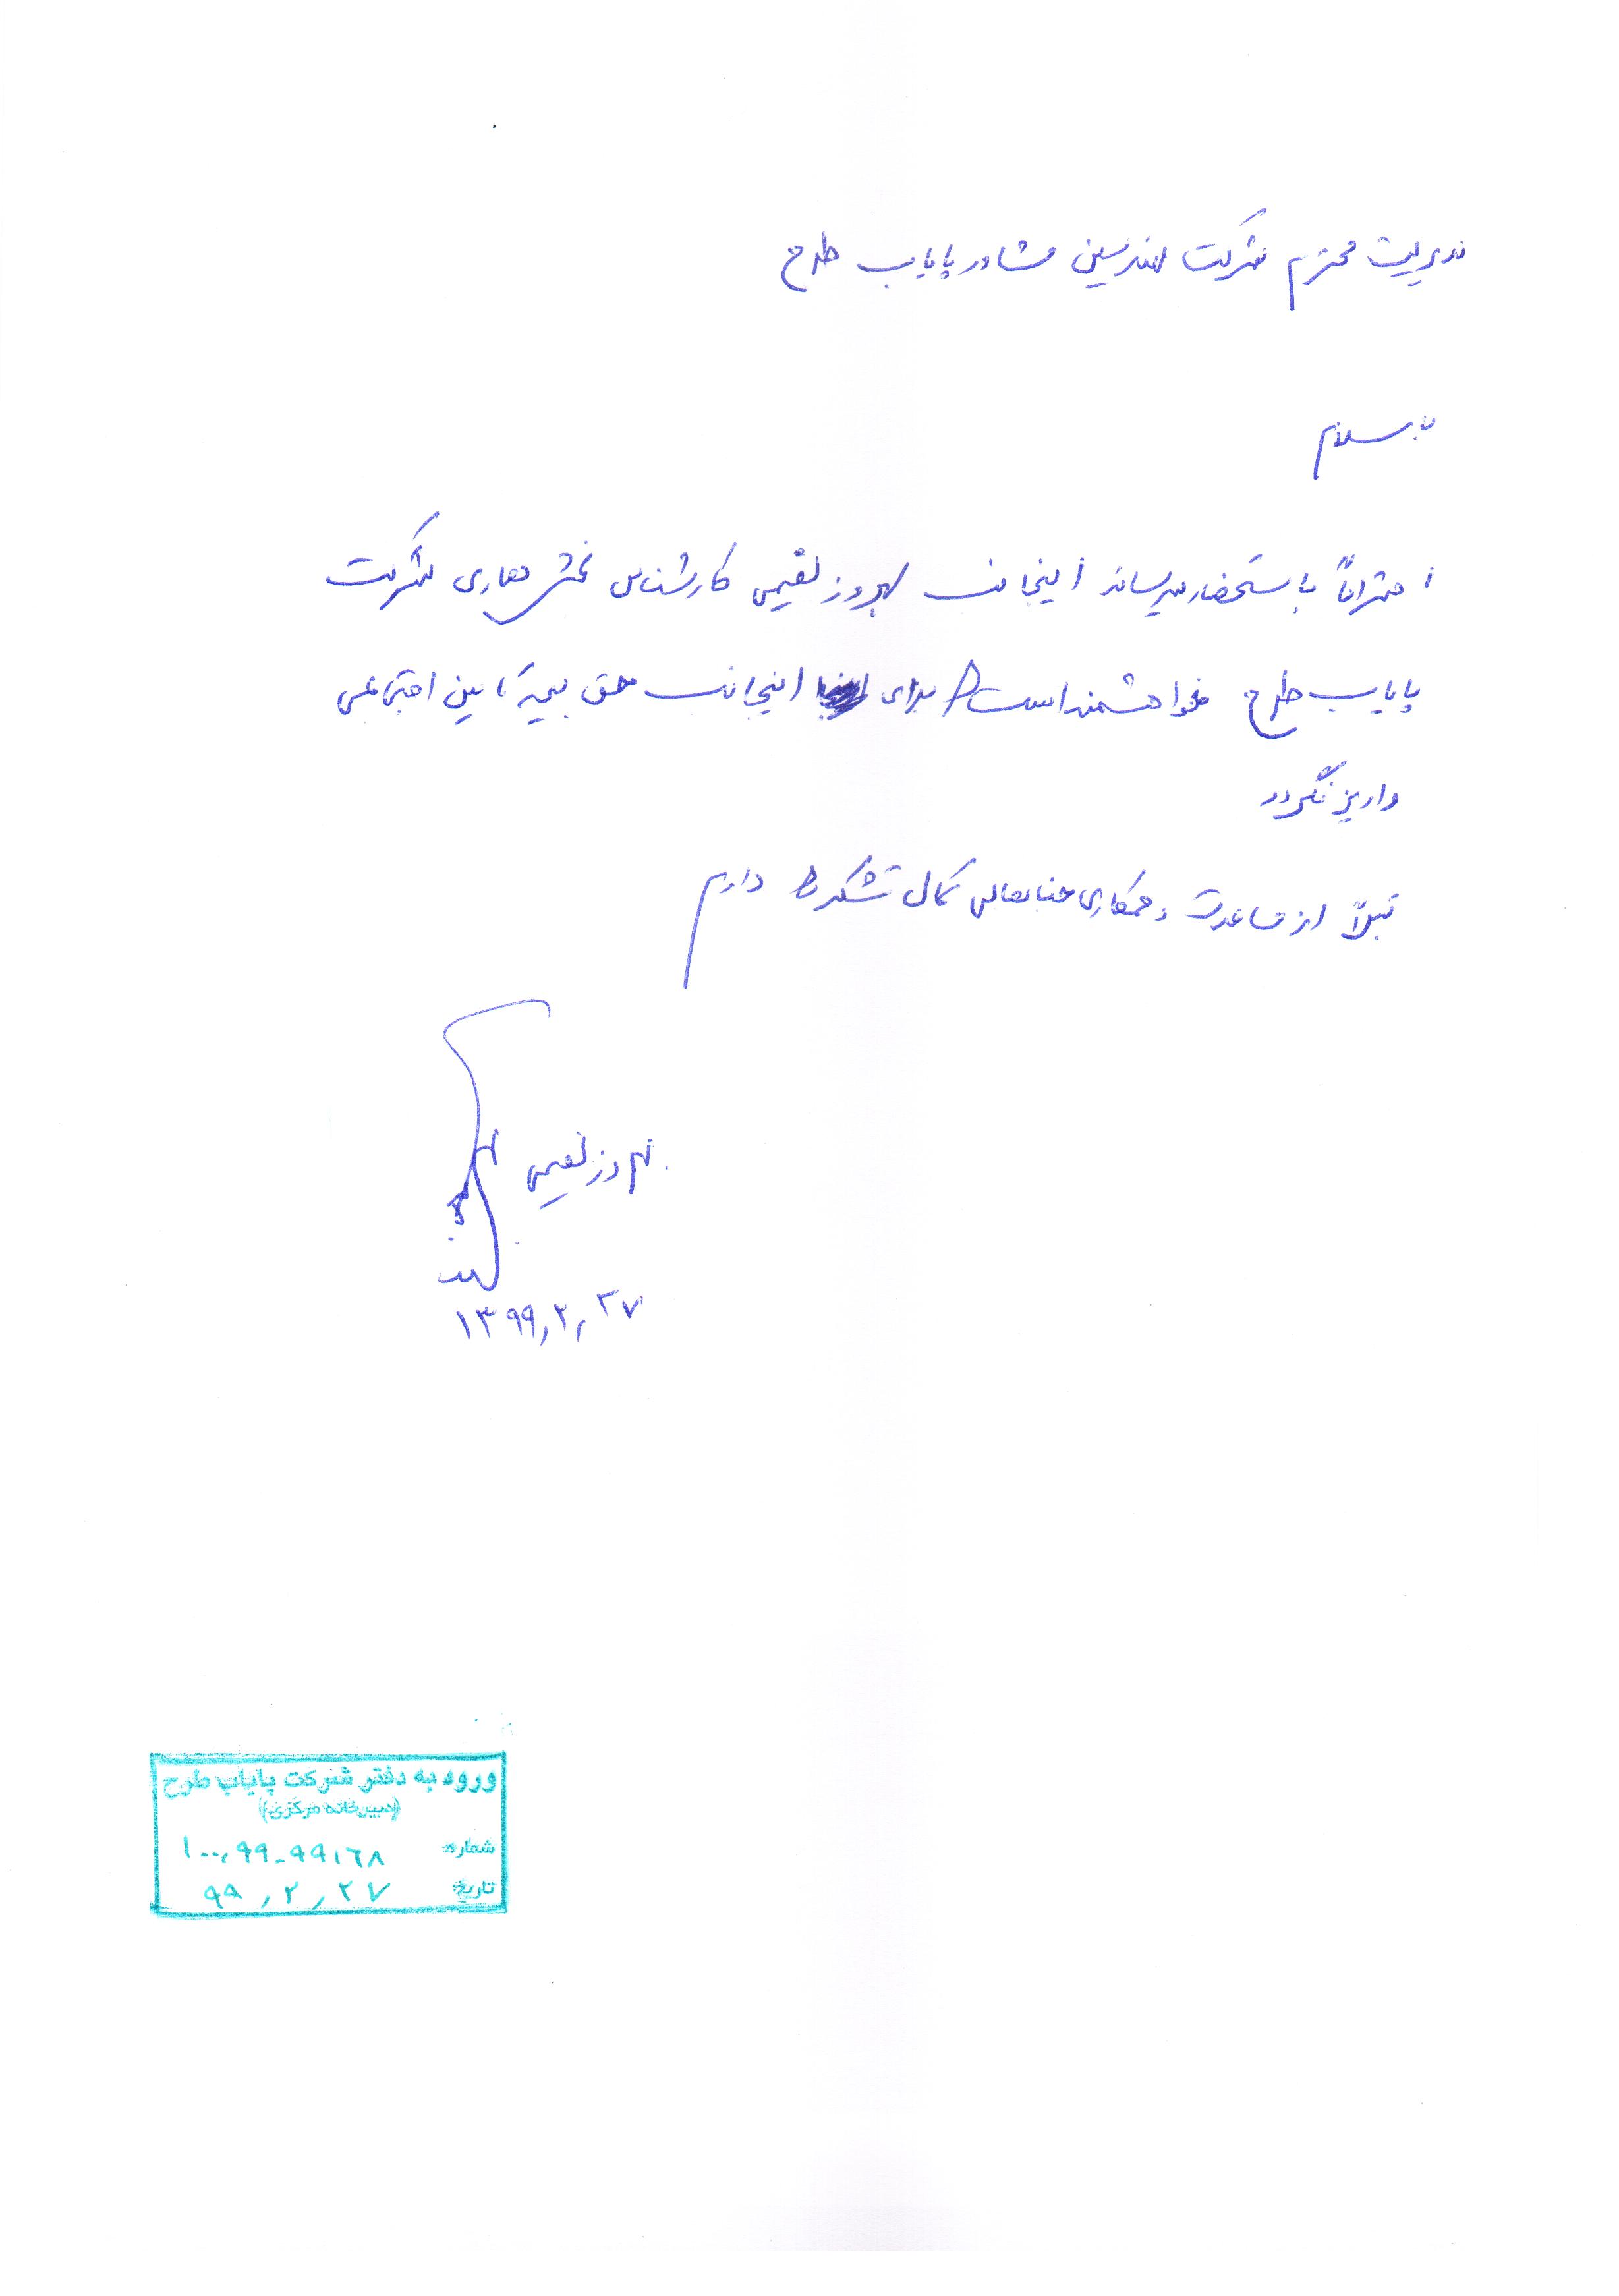 مدیریت محترم شرکت مهندسین مشاور پایاب طرح
با سلام
احتراماً باستحضار میرساند اینجانب بهروز نعیمی کارشناس بخش معماری شرکت
پایاب طرح خواهشمند است برای اینجانب حق بیمه تامین اجتماعی
واریز نگردد
قبلاً از مساعدت و همکاری جنابعالی کمال تشکر را دارم
بهروز نعیمی
۱۳۹۹,۲,۲۷
ورود به دفتر شرکت پایاب طرح
(دبیرخانه مرکزی)
شماره ۱۰۰,۹۹-۹۹۱۶۸
تاریخ ۹۹,۲,۲۷